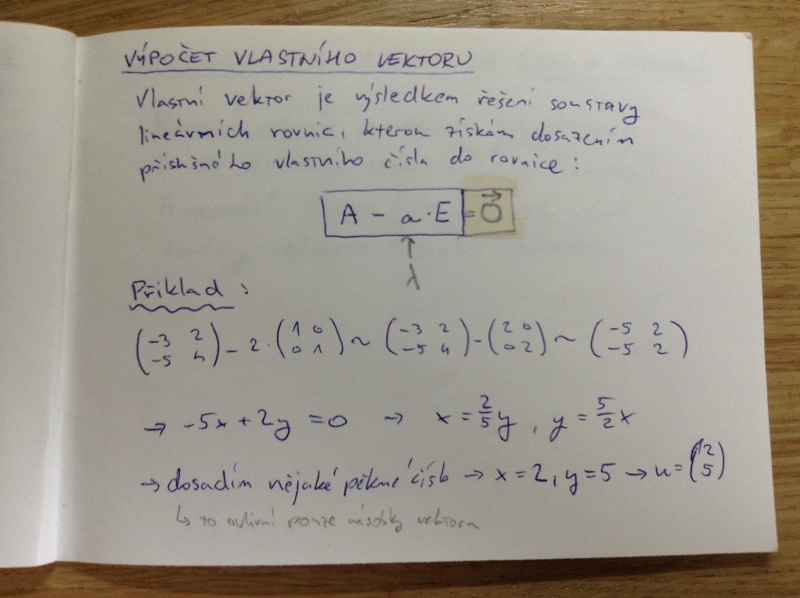 VÝPOČET VLASTNÍHO VEKTORU
Vlastní vektor je výsledkem řešení soustavy
lineárních rovnic, kterou získám dosazením
příslušného vlastního čísla do rovnice:
A - a·E = \vec{0}
↑
λ
Příklad:
(-3 2; -5 4) - 2·(1 0; 0 1) ~ (-3 2; -5 4) - (2 0; 0 2) ~ (-5 2; -5 2)
→ -5x + 2y = 0 → x = 2/5 y, y = 5/2 x
→ dosadím nějaké pěkné číslo → x = 2, y = 5 → u = (2; 5)
↳ to ovlivní pouze násobky vektoru